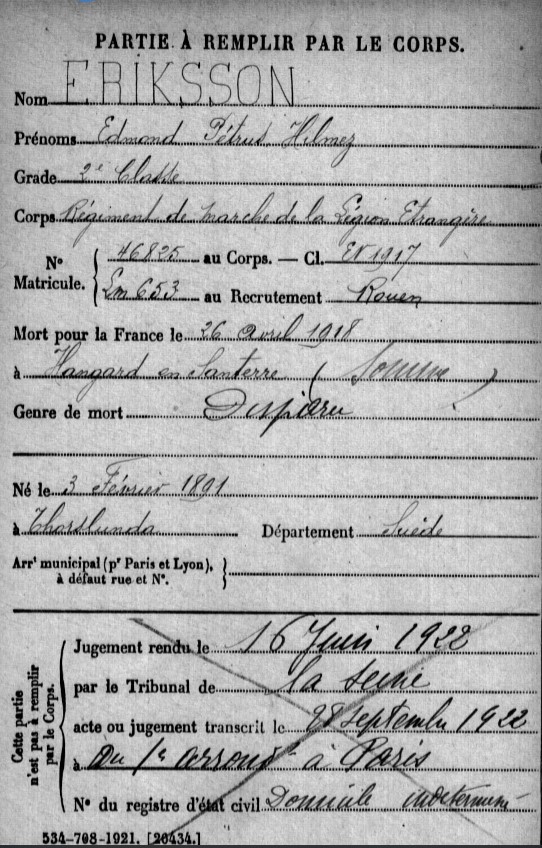 PARTIE À REMPLIR PAR LE CORPS.
Nom ERIKSSON
Prénoms Edmond Pétrus Hilmez
Grade 2e Classe
Corps Régiment de marche de la Légion Etrangère
N° Matricule. { 46825 au Corps. — Cl. EV 1917
Lm 653 au Recrutement Rouen
Mort pour la France le 26 avril 1918
à Hangard en Santerre (Somme)
Genre de mort Disparu
Né le 3 Février 1891
à Thorslunda Département Suède
Arrt municipal (pr Paris et Lyon), à défaut rue et N°. }
Cette partie n'est pas à remplir par le Corps.
Jugement rendu le 16 Juin 1922
par le Tribunal de la Seine
acte ou jugement transcrit le 28 septembre 1922
à au 1er arrondt à Paris
N° du registre d'état civil Domicile indéterminé
534-708-1921. [26434.]